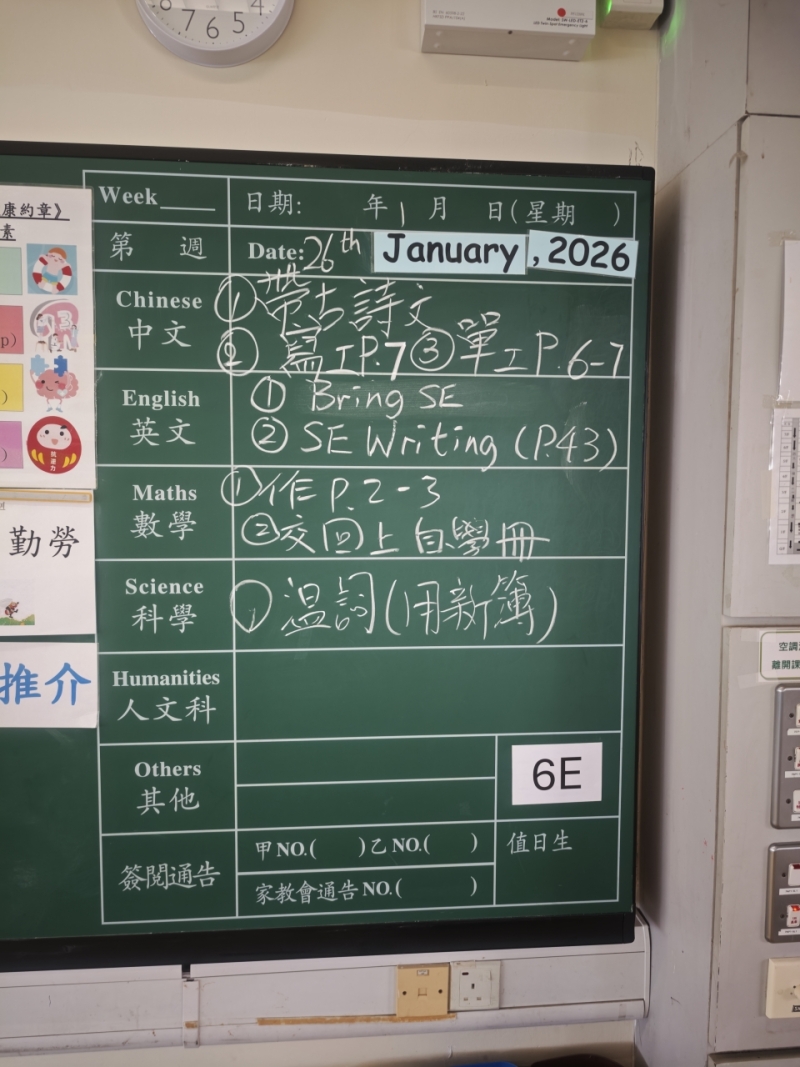 7 6 5
康約章》
素
p)
)
)
勤勞
推介
Week____ 日期: 年 1 月 日(星期 )
第 週 Date: 26th January, 2026
Chinese 中文
① 帶古詩文
② 寫工P.7 ③ 單工P.6-7
English 英文
① Bring SE
② SE Writing (P.43)
Maths 數學
① 作 P.2-3
② 交回上自學冊
Science 科學
① 温詞(用新簿)
Humanities 人文科
Others 其他
6E
簽閱通告
甲NO.( )乙NO.( )
家教會通告NO.( )
值日生
空調
離開課